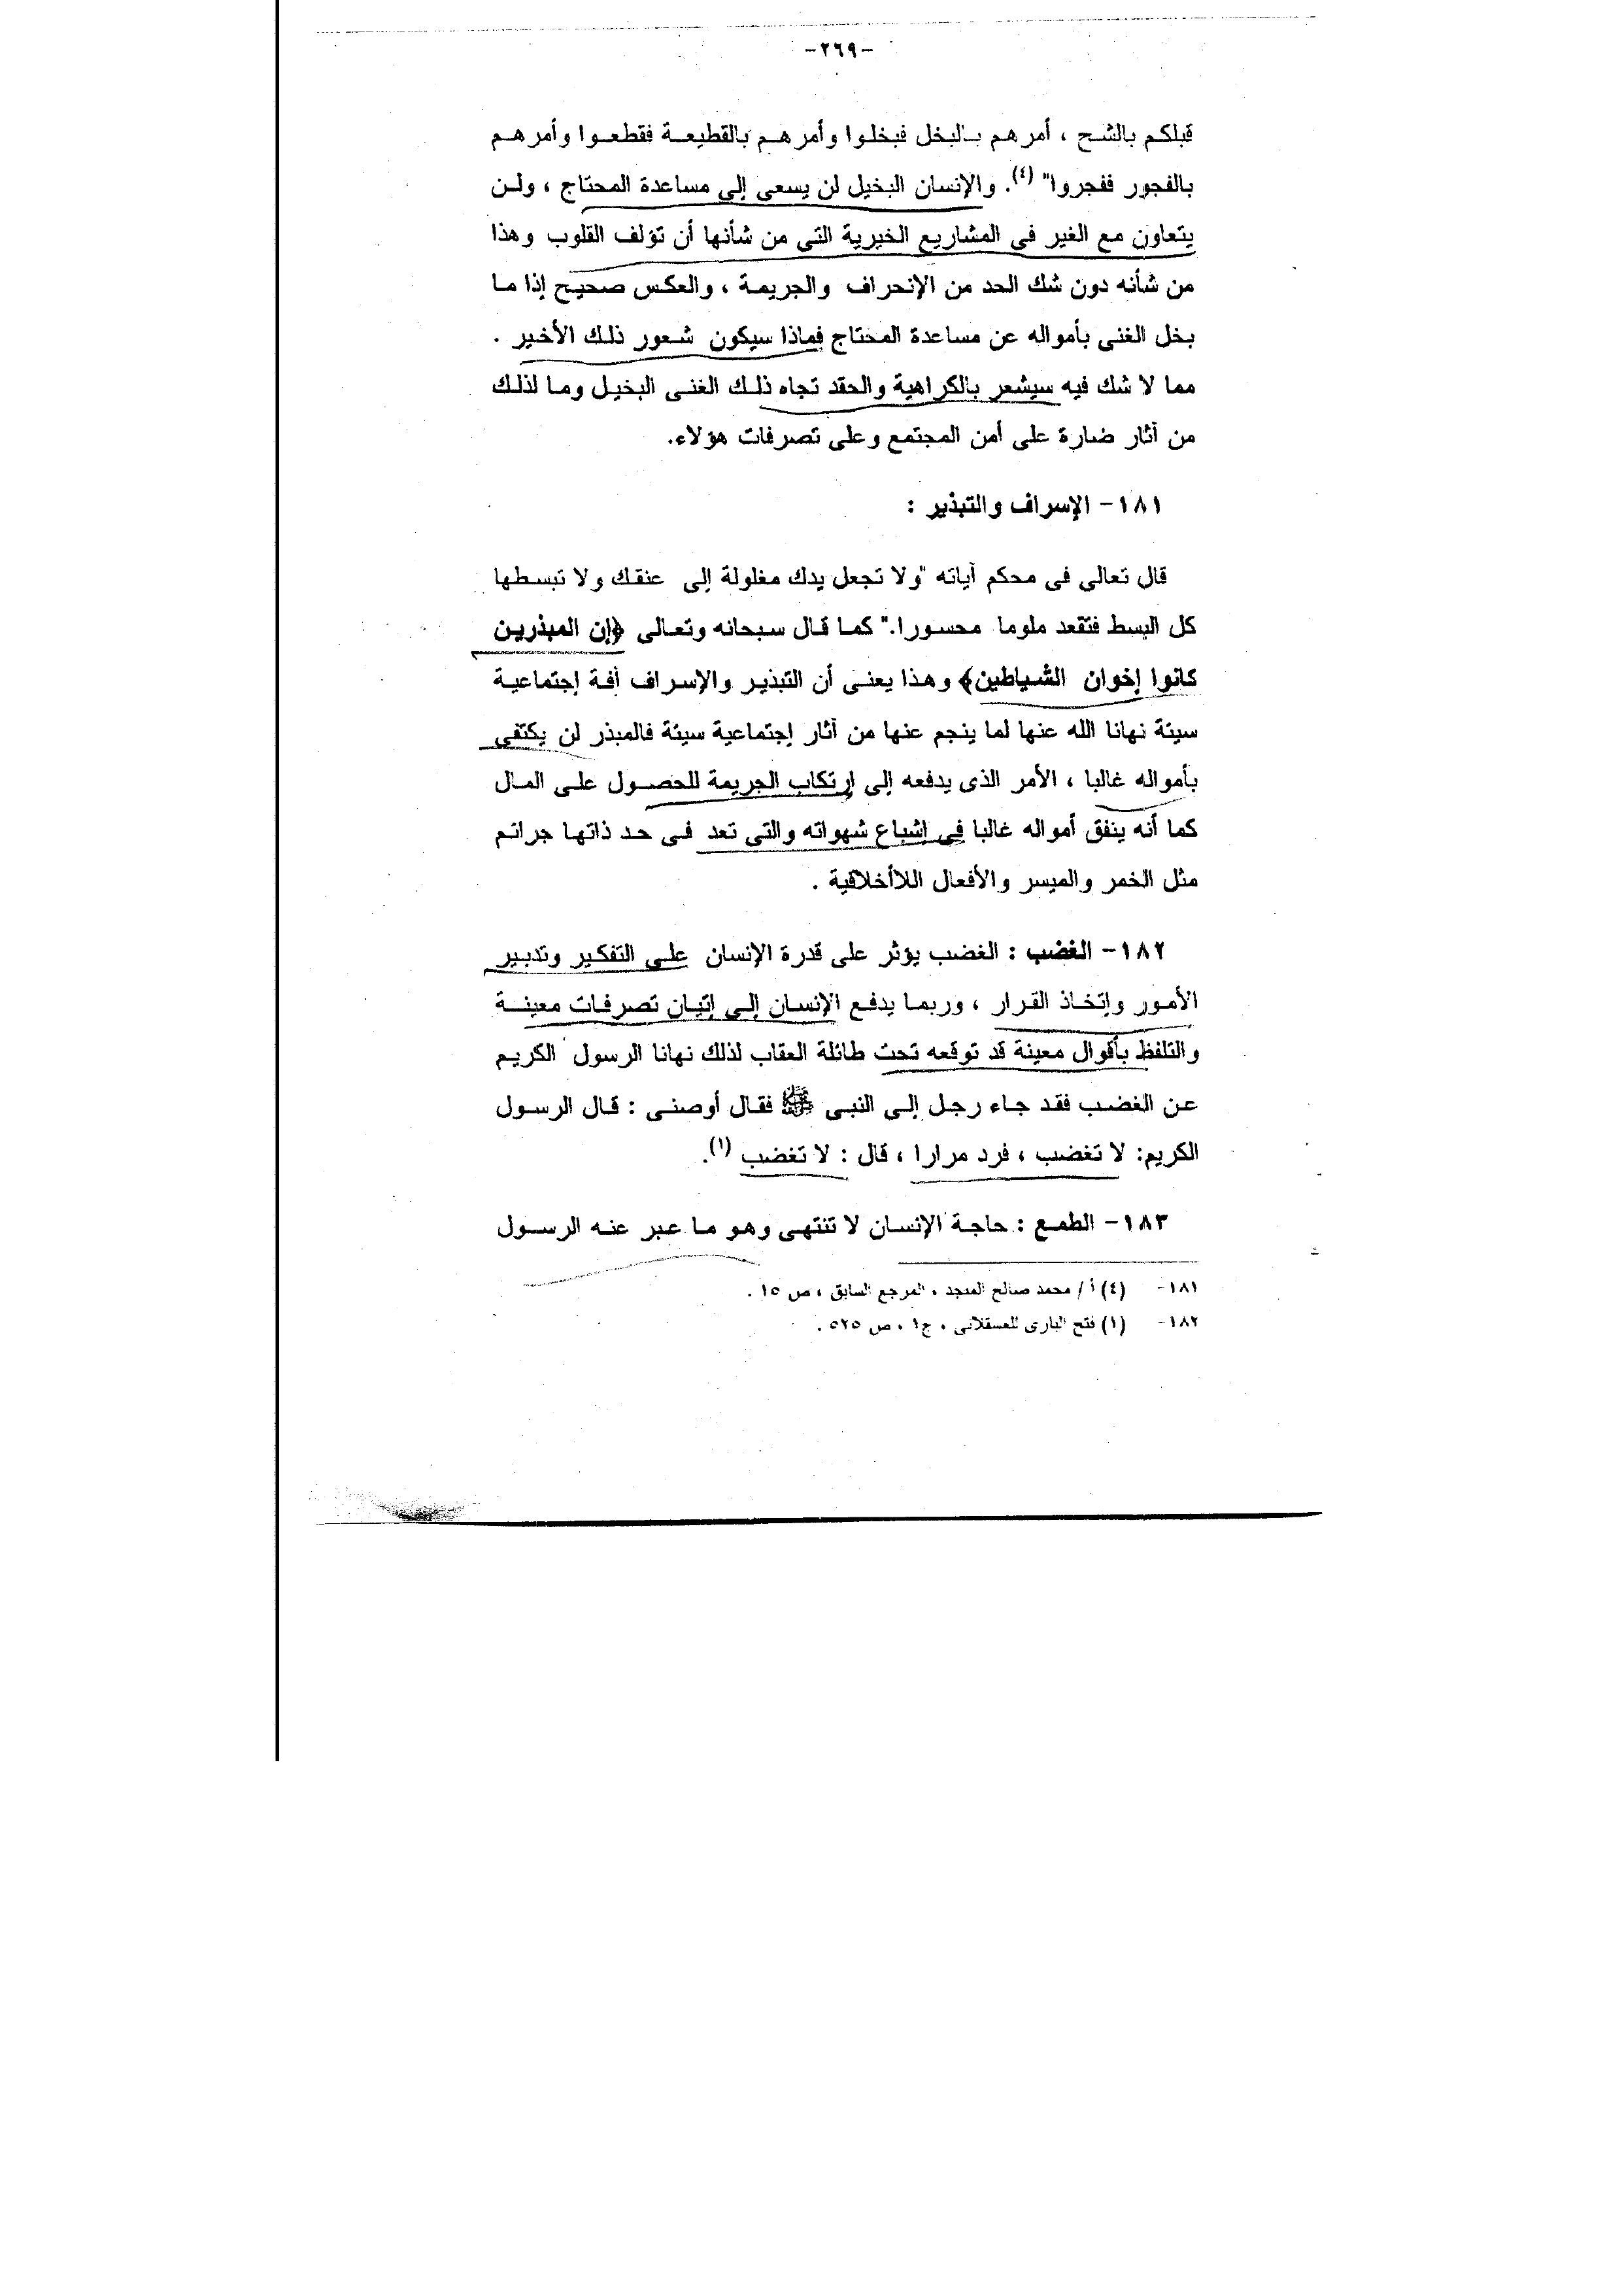 -٢٦٩-
قبلكم بالشح ، أمرهم بالبخل فبخلوا وأمرهم بالقطيعة فقطعوا وأمرهم
بالفجور ففجروا" (٤). والإنسان البخيل لن يسعى إلى مساعدة المحتاج ، ولن
يتعاون مع الغير فى المشاريع الخيرية التى من شأنها أن تؤلف القلوب وهذا
من شأنه دون شك الحد من الإنحراف والجريمة ، والعكس صحيح إذا ما
بخل الغنى بأمواله عن مساعدة المحتاج فماذا سيكون شعور ذلك الأخير .
مما لا شك فيه سيشعر بالكراهية والحقد تجاه ذلك الغنى البخيل وما لذلك
من آثار ضارة على أمن المجتمع وعلى تصرفات هؤلاء.
١٨١- الإسراف والتبذير :
قال تعالى فى محكم آياته "ولا تجعل يدك مغلولة إلى عنقك ولا تبسطها
كل البسط فتقعد ملوما محسورا." كما قال سبحانه وتعالى ﴿إن المبذرين
كانوا إخوان الشياطين﴾ وهذا يعنى أن التبذير والإسراف آفة إجتماعية
سيئة نهانا الله عنها لما ينجم عنها من آثار إجتماعية سيئة فالمبذر لن يكتفى
بأمواله غالبا ، الأمر الذى يدفعه إلى إرتكاب الجريمة للحصول على المال
كما أنه ينفق أمواله غالبا فى إشباع شهواته والتى تعد فى حد ذاتها جرائم
مثل الخمر والميسر والأفعال اللاأخلاقية .
١٨٢- الغضب : الغضب يؤثر على قدرة الإنسان على التفكير وتدبير
الأمور وإتخاذ القرار ، وربما يدفع الإنسان إلى إتيان تصرفات معينة
والتلفظ بأقوال معينة قد توقعه تحت طائلة العقاب لذلك نهانا الرسول الكريم
عن الغضب فقد جاء رجل إلى النبى ﷺ فقال أوصنى : قال الرسول
الكريم: لا تغضب ، فرد مرارا ، قال : لا تغضب (١).
١٨٣- الطمع : حاجة الإنسان لا تنتهى وهو ما عبر عنه الرسول
١٨١- (٤) أ/ محمد صالح المنجد ، المرجع السابق ، ص ١٥ .
١٨٢- (١) فتح البارى للعسقلانى ، ج١ ، ص ٥٢٥ .